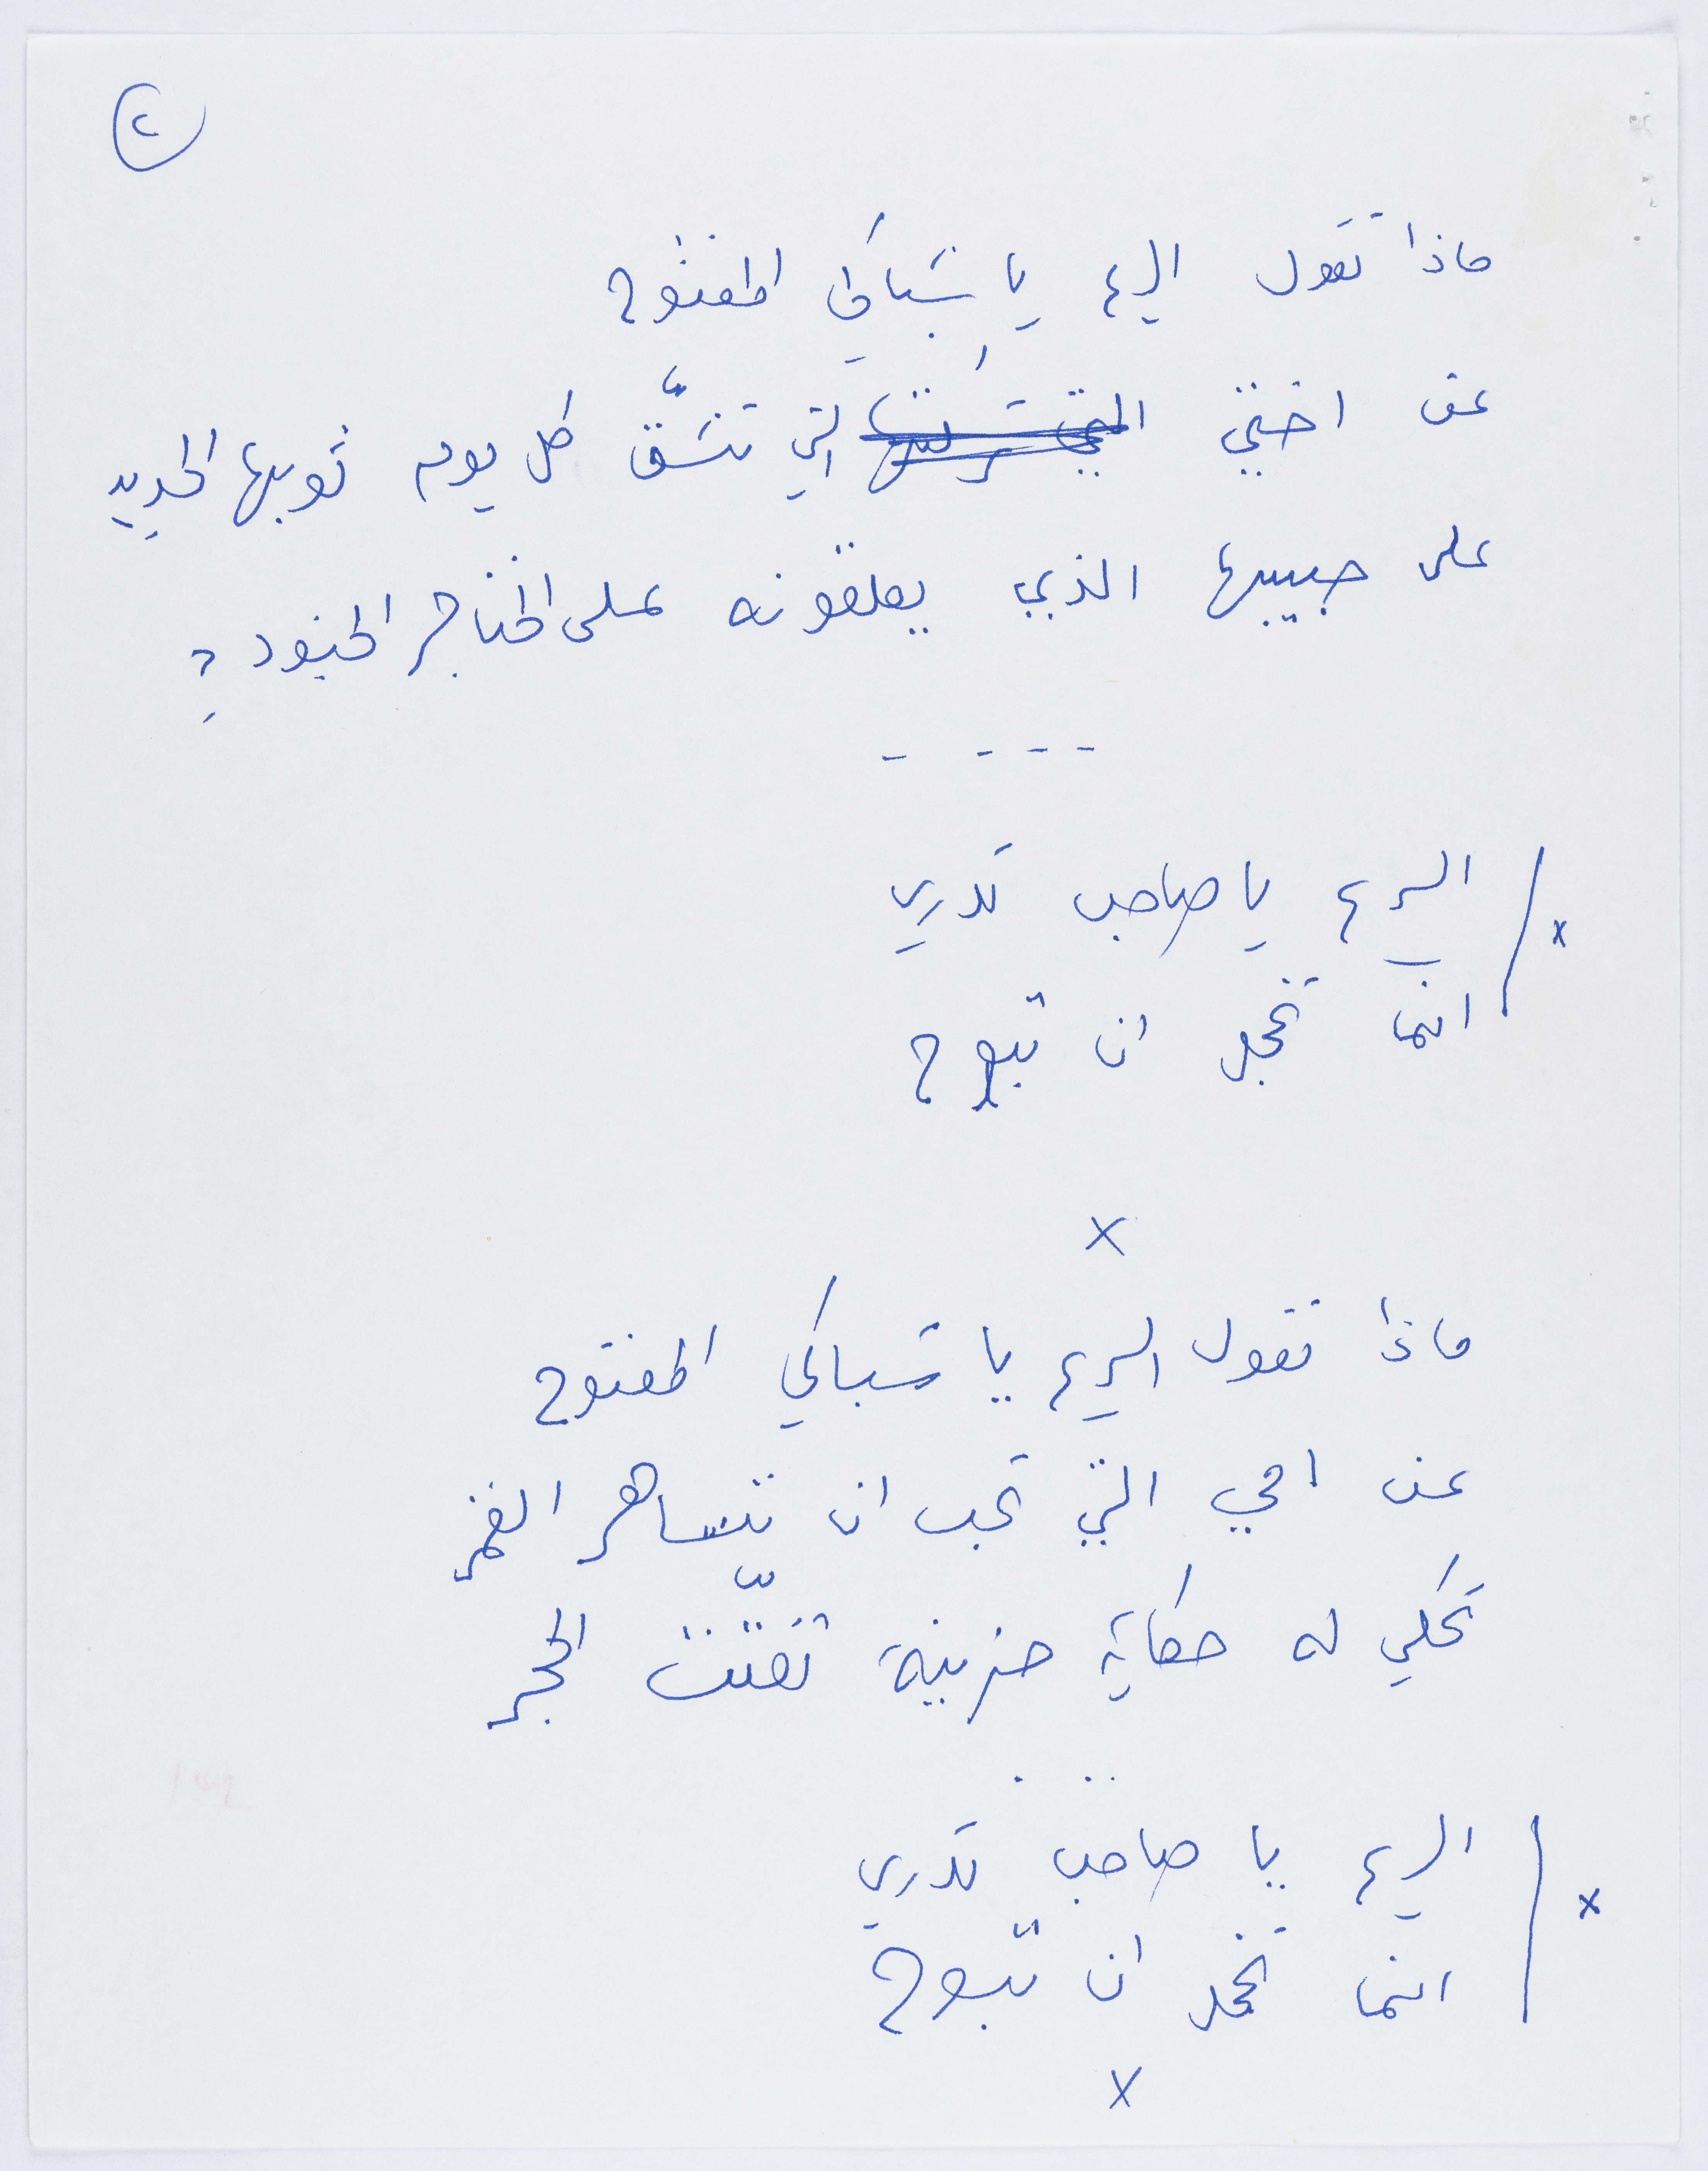 ٢
ماذا تقول الريح يا شباكي المفتوح
عن اختي التي تشقّ كل يوم ثوبها الجديد
على حبيبها الذي يعلقونه على الخناجر الجنود؟
- - - -
الريح يا صاحب تدري
x
انما تخجل ان تبوح
x
ماذا تقول الريح يا شباكي المفتوح
عن امي التي تحب ان تتساهر القمر
تحكي له حكاية حزينة تفتّت الحجر
. . .
الريح يا صاحب تدري
x
انما تخجل ان تبوح
x